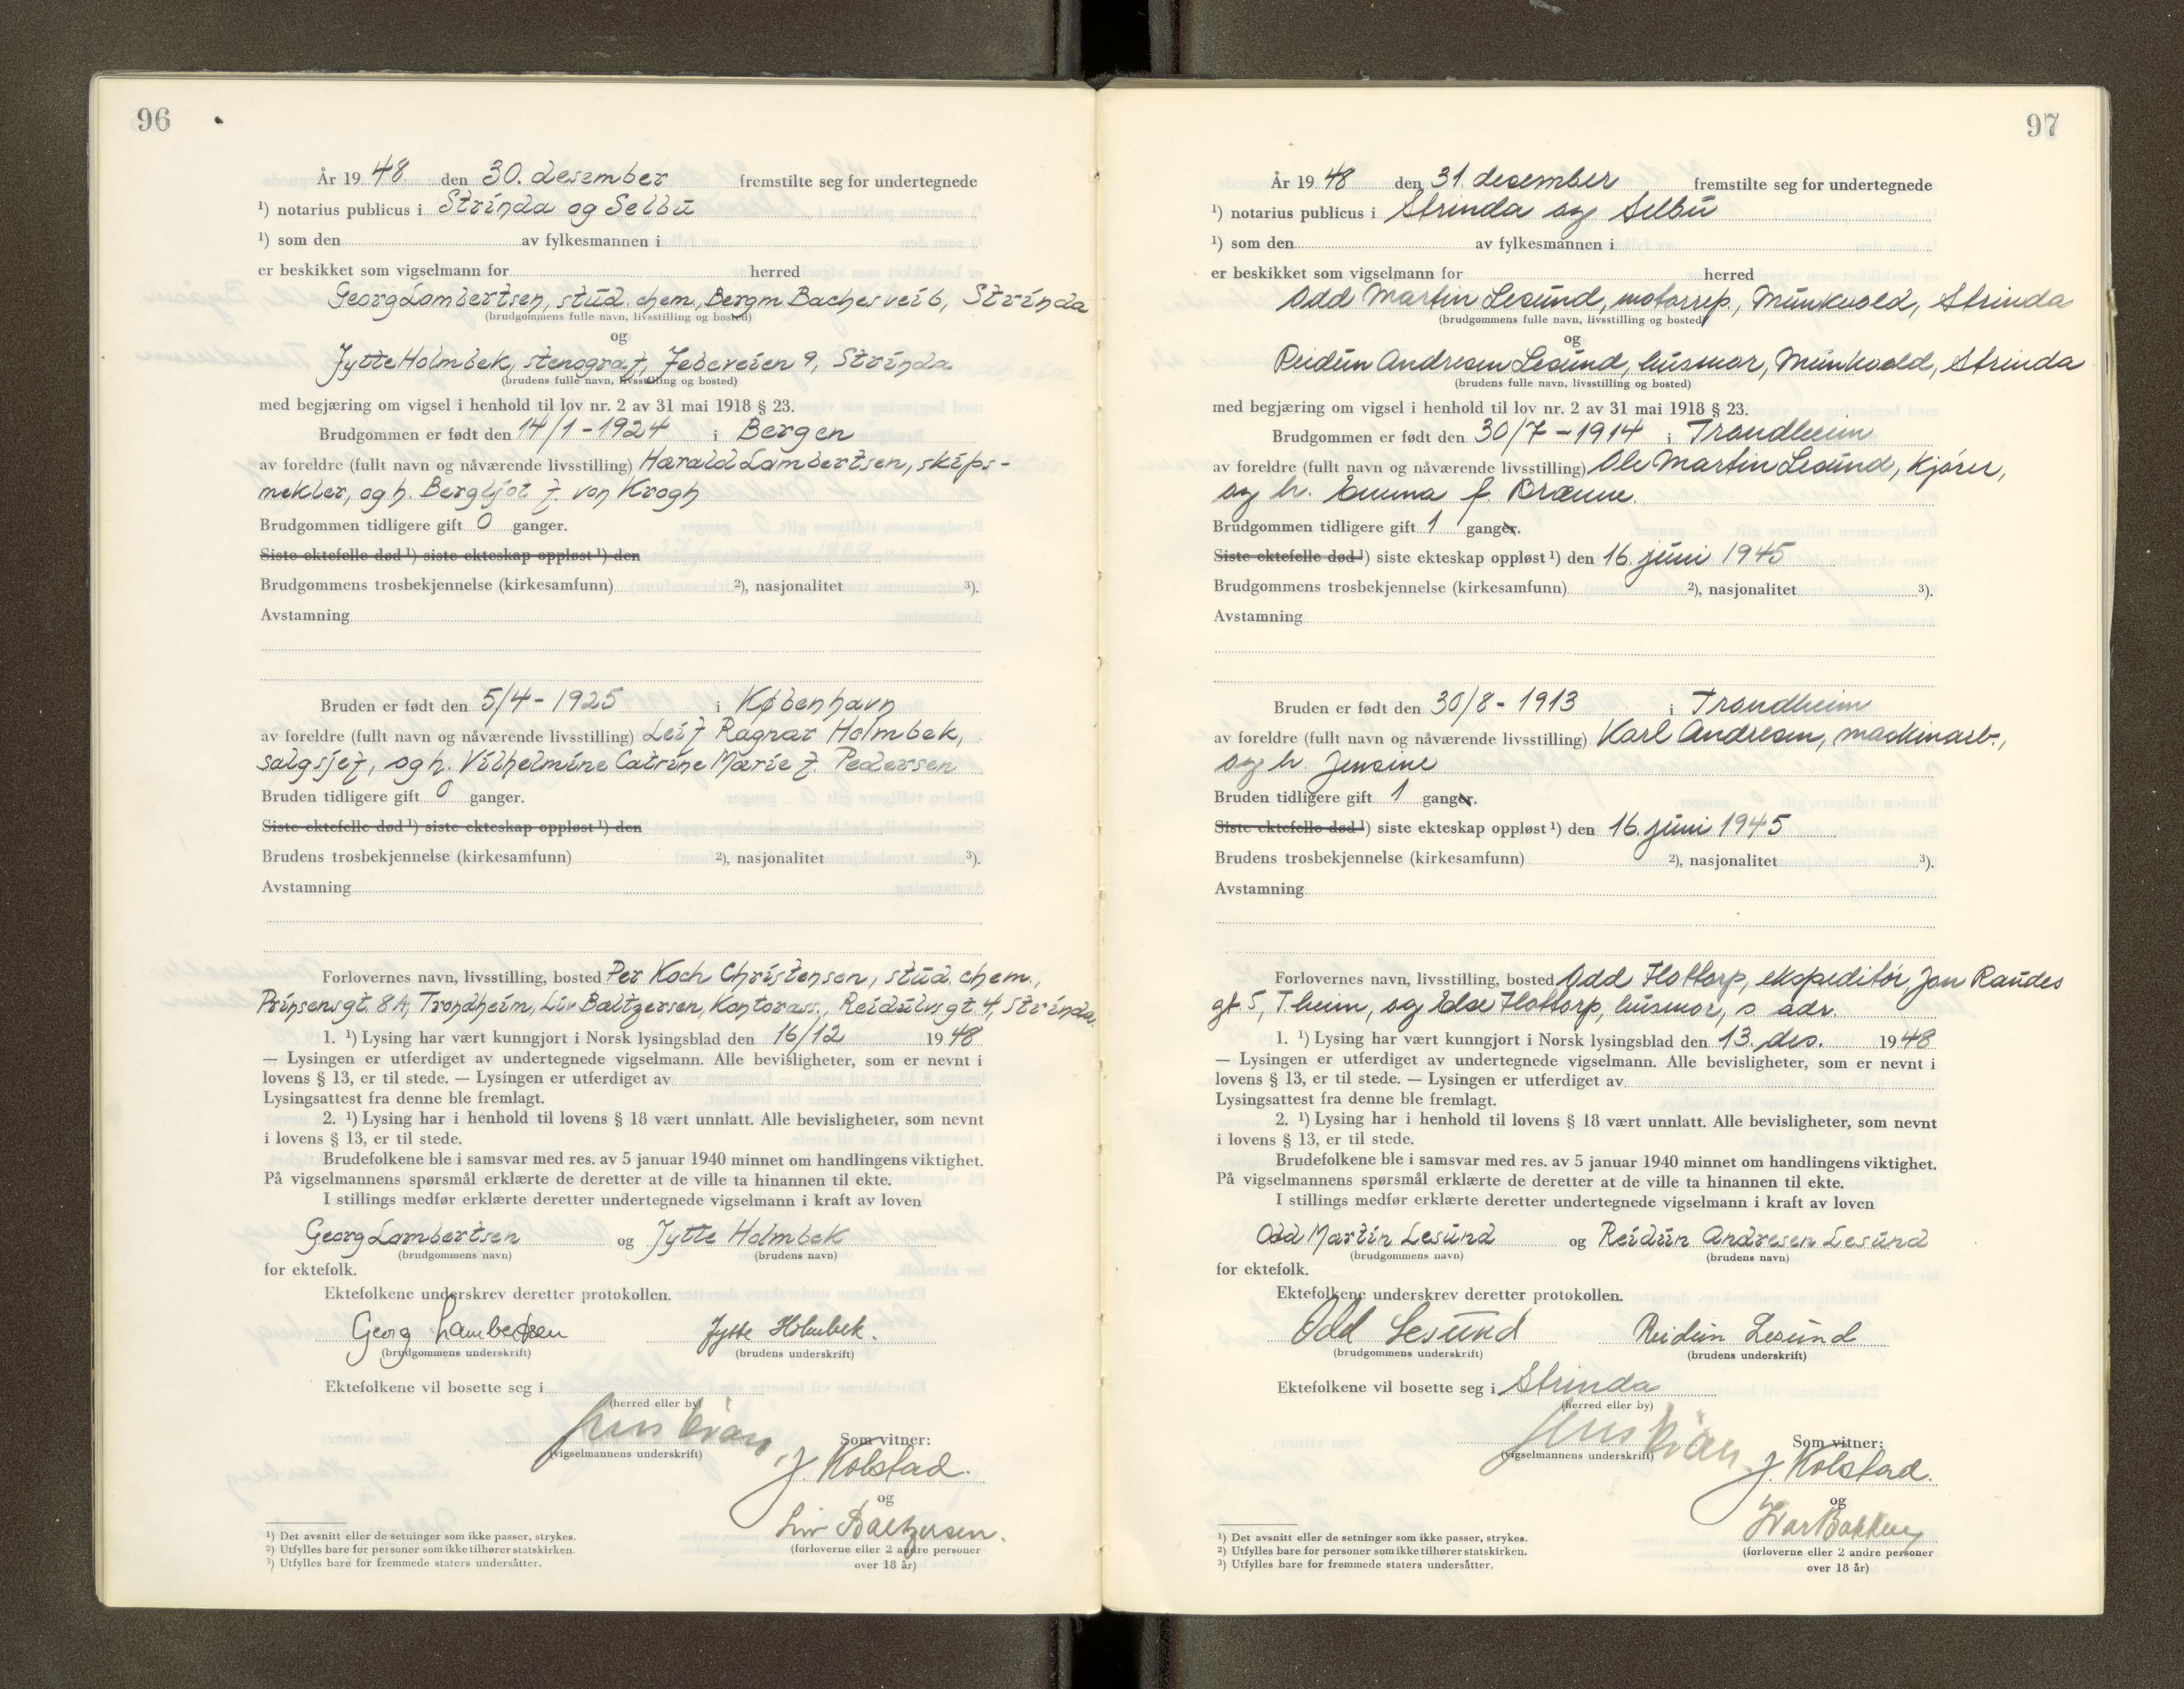 96
År 19 48 den 30. desember fremstilte seg for undertegnede
¹) notarius publicus i Strinda og Selbu
¹) som den av fylkesmannen i
er beskikket som vigselmann for herred
Georg Lambertsen, stud. chem, Bergm Baches vei 6, Strinda
(brudgommens fulle navn, livsstilling og bosted)
og
Jytte Holmbek, stenograf, Jebeveien 9, Strinda
(brudens fulle navn, livsstilling og bosted)
med begjæring om vigsel i henhold til lov nr. 2 av 31 mai 1918 § 23.
Brudgommen er født den 14/1-1924 i Bergen
av foreldre (fullt navn og nåværende livsstilling) Harald Lambertsen, skips-
mekler, og h. Bergljot f. von Krogh
Brudgommen tidligere gift 0 ganger.
Siste ektefelle død ¹) siste ekteskap oppløst ¹) den
Brudgommens trosbekjennelse (kirkesamfunn) ²), nasjonalitet ³).
Avstamning
Bruden er født den 5/4-1925 i København
av foreldre (fullt navn og nåværende livsstilling) Leif Ragnar Holmbek,
salgsjef, og h. Vilhelmine Catrine Marie f. Pedersen
Bruden tidligere gift 0 ganger.
Siste ektefelle død ¹) siste ekteskap oppløst ¹) den
Brudens trosbekjennelse (kirkesamfunn) ²), nasjonalitet ³).
Avstamning
Forlovernes navn, livsstilling, bosted Per Koch Christensen, stud. chem.,
Prinsensgt. 8A, Trondheim, Liv Baltzersen, Kontorass., Reidulvsgt. 4, Strinda.
1. ¹) Lysing har vært kunngjort i Norsk lysingsblad den 16/12 19 48
— Lysingen er utferdiget av undertegnede vigselmann. Alle bevisligheter, som er nevnt i
lovens § 13, er til stede. — Lysingen er utferdiget av
Lysingsattest fra denne ble fremlagt.
2. ¹) Lysing har i henhold til lovens § 18 vært unnlatt. Alle bevisligheter, som nevnt
i lovens § 13, er til stede.
Brudefolkene ble i samsvar med res. av 5 januar 1940 minnet om handlingens viktighet.
På vigselmannens spørsmål erklærte de deretter at de ville ta hinannen til ekte.
I stillings medfør erklærte deretter undertegnede vigselmann i kraft av loven
Georg Lambertsen og Jytte Holmbek
(brudgommens navn) (brudens navn)
for ektefolk.
Ektefolkene underskrev deretter protokollen.
Georg Lambertsen Jytte Holmbek.
(brudgommens underskrift) (brudens underskrift)
Ektefolkene vil bosette seg i
(herred eller by)
Som vitner:
(vigselmannens underskrift)
J. Kolstad.
og
Liv Baltzersen.
(forloverne eller 2 andre personer
over 18 år)
¹) Det avsnitt eller de setninger som ikke passer, strykes.
²) Utfylles bare for personer som ikke tilhører statskirken.
³) Utfylles bare for fremmede staters undersåtter.
97
År 19 48 den 31. desember fremstilte seg for undertegnede
¹) notarius publicus i Strinda og Selbu
¹) som den av fylkesmannen i
er beskikket som vigselmann for herred
Odd Martin Lesund, motorrep., Munkvold, Strinda
(brudgommens fulle navn, livsstilling og bosted)
og
Reidun Andresen Lesund, husmor, Munkvold, Strinda
(brudens fulle navn, livsstilling og bosted)
med begjæring om vigsel i henhold til lov nr. 2 av 31 mai 1918 § 23.
Brudgommen er født den 30/7-1914 i Trondheim
av foreldre (fullt navn og nåværende livsstilling) Ole Martin Lesund, kjører,
og h. Emma f. Brænne.
Brudgommen tidligere gift 1 ganger.
Siste ektefelle død ¹) siste ekteskap oppløst ¹) den 16. juni 1945
Brudgommens trosbekjennelse (kirkesamfunn) ²), nasjonalitet ³).
Avstamning
Bruden er født den 30/8-1913 i Trondheim
av foreldre (fullt navn og nåværende livsstilling) Karl Andresen, maskinarb.,
og h. Jensine
Bruden tidligere gift 1 ganger.
Siste ektefelle død ¹) siste ekteskap oppløst ¹) den 16. juni 1945
Brudens trosbekjennelse (kirkesamfunn) ²), nasjonalitet ³).
Avstamning
Forlovernes navn, livsstilling, bosted Odd Flottorp, ekspeditør, Jon Raudes
gt 5, T.heim, og Elsa Flottorp, husmor, s. adr.
1. ¹) Lysing har vært kunngjort i Norsk lysingsblad den 13. des. 19 48
— Lysingen er utferdiget av undertegnede vigselmann. Alle bevisligheter, som er nevnt i
lovens § 13, er til stede. — Lysingen er utferdiget av
Lysingsattest fra denne ble fremlagt.
2. ¹) Lysing har i henhold til lovens § 18 vært unnlatt. Alle bevisligheter, som nevnt
i lovens § 13, er til stede.
Brudefolkene ble i samsvar med res. av 5 januar 1940 minnet om handlingens viktighet.
På vigselmannens spørsmål erklærte de deretter at de ville ta hinannen til ekte.
I stillings medfør erklærte deretter undertegnede vigselmann i kraft av loven
Odd Martin Lesund og Reidun Andresen Lesund
(brudgommens navn) (brudens navn)
for ektefolk.
Ektefolkene underskrev deretter protokollen.
Odd Lesund Reidun Lesund
(brudgommens underskrift) (brudens underskrift)
Ektefolkene vil bosette seg i Strinda
(herred eller by)
Som vitner:
(vigselmannens underskrift)
J. Kolstad.
og
Ivar Bakken
(forloverne eller 2 andre personer
over 18 år)
¹) Det avsnitt eller de setninger som ikke passer, strykes.
²) Utfylles bare for personer som ikke tilhører statskirken.
³) Utfylles bare for fremmede staters undersåtter.